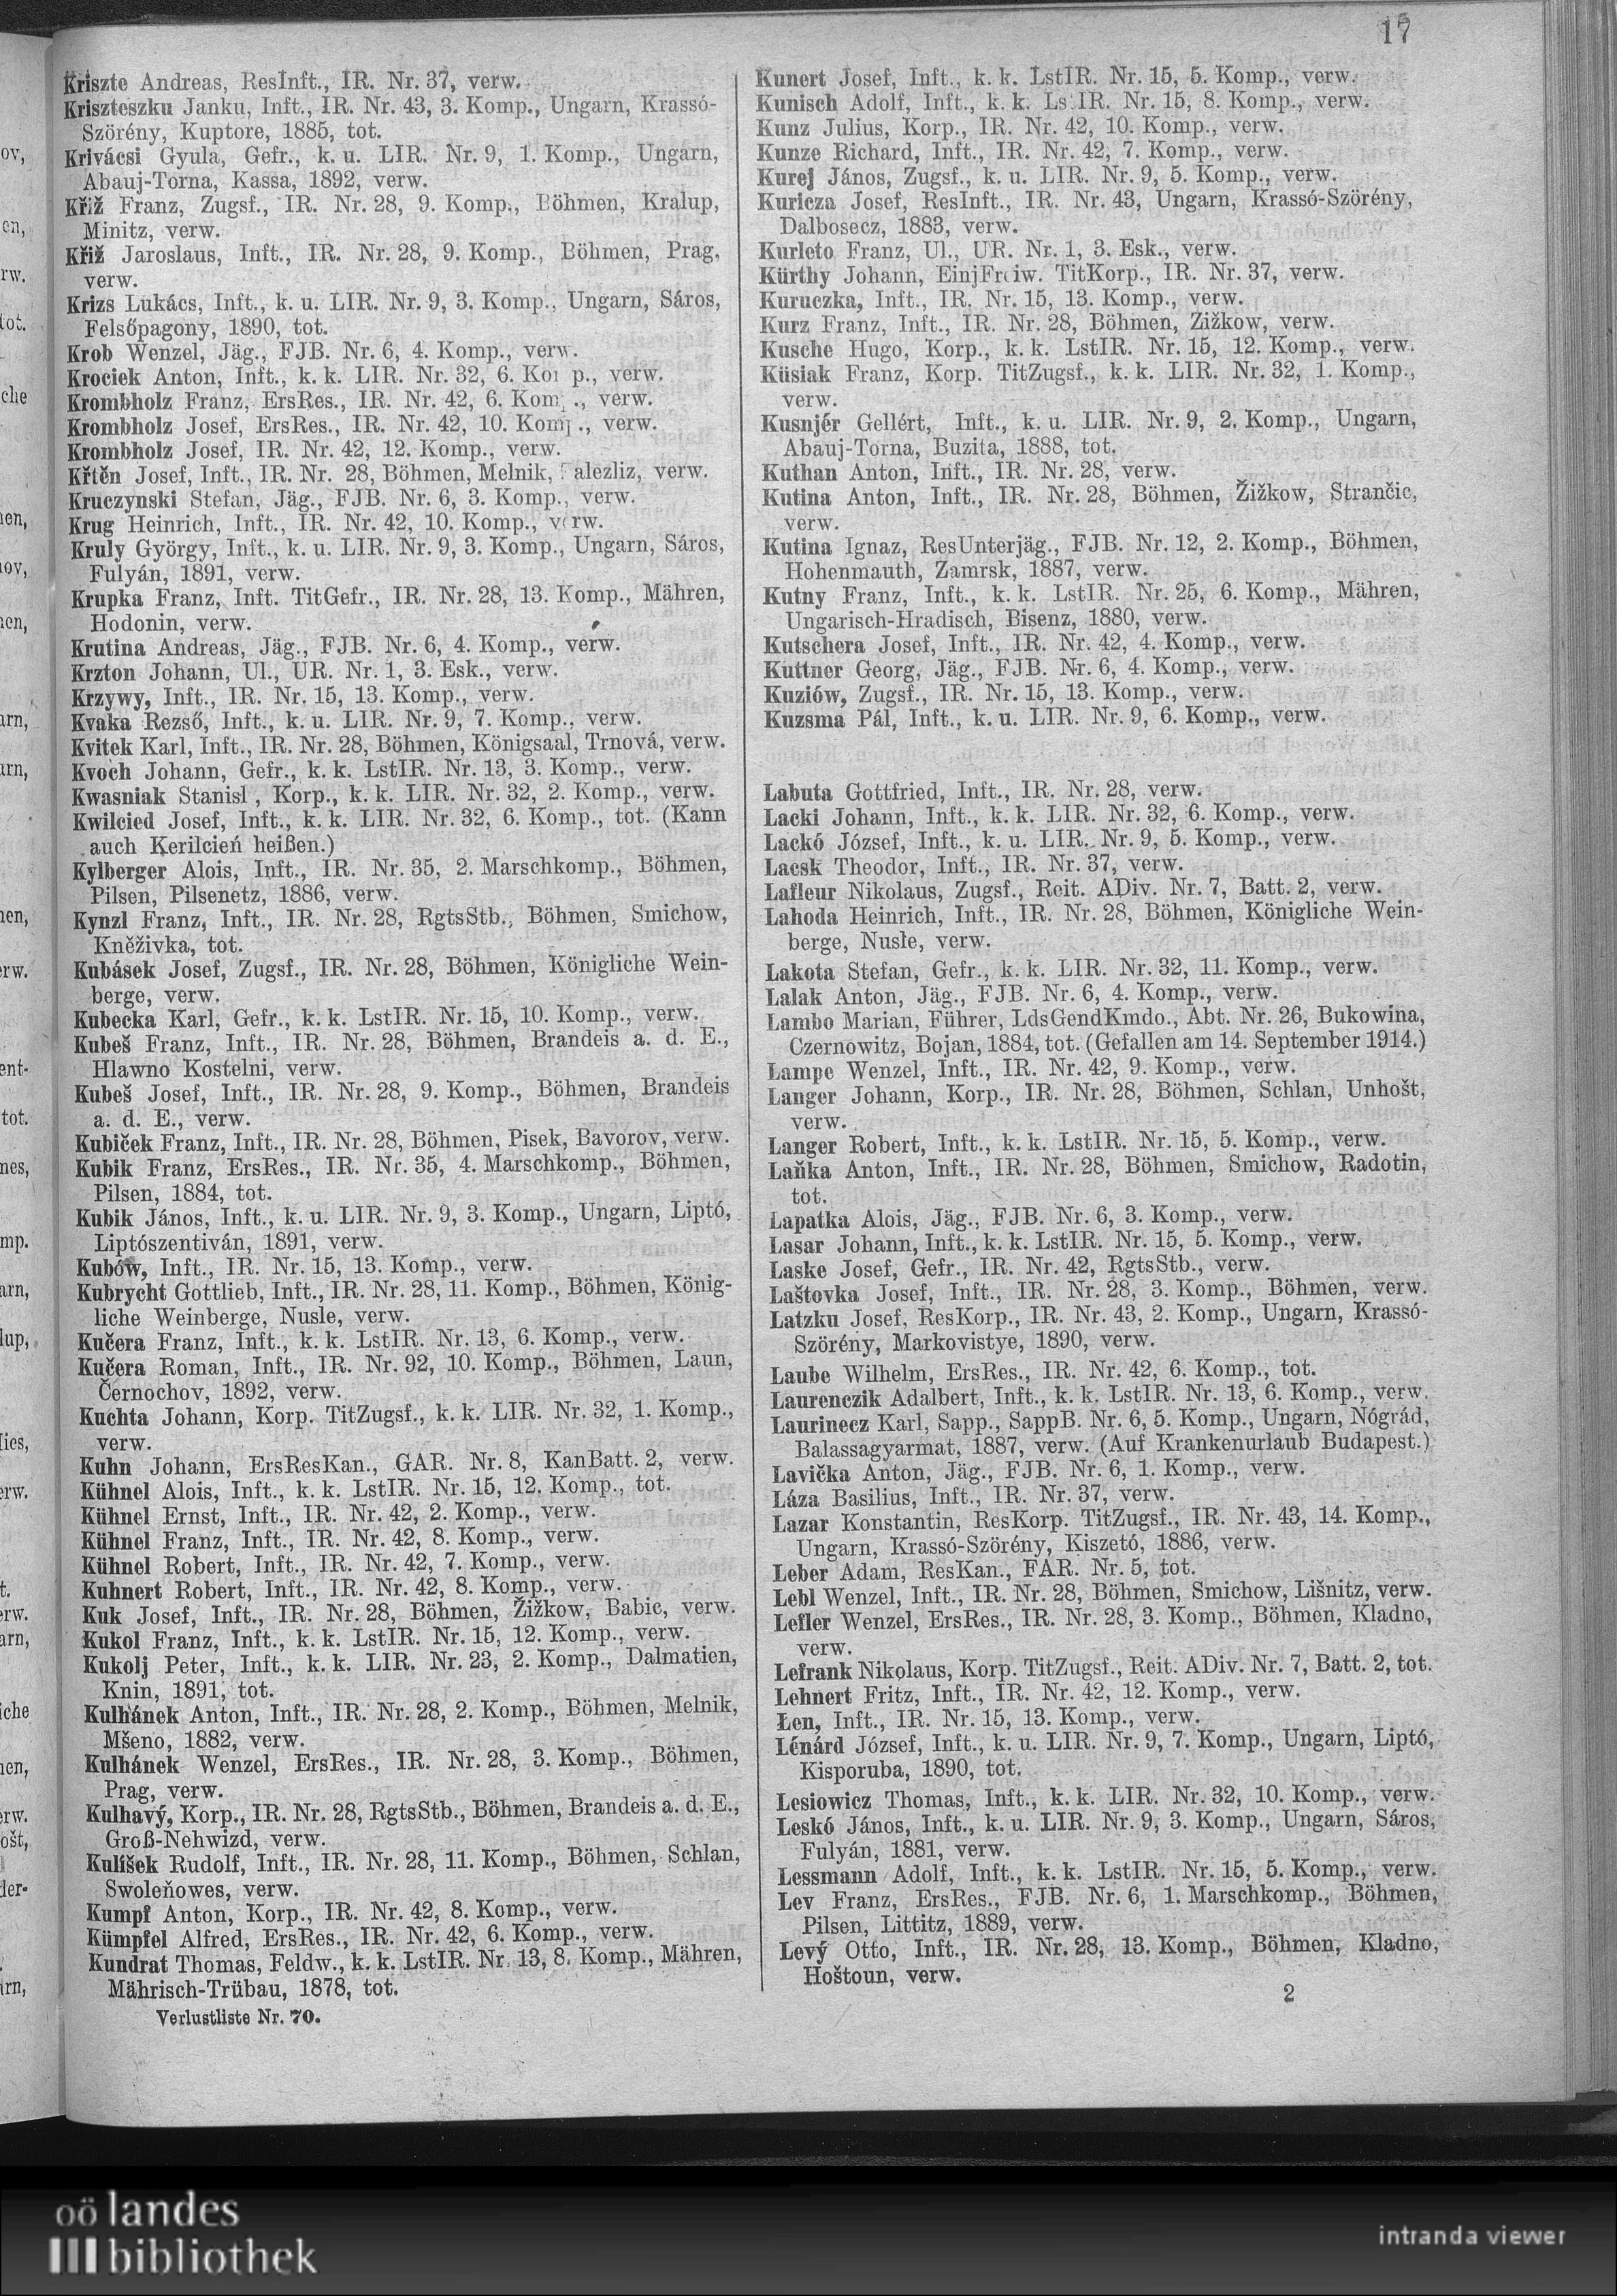 17
Kriszte Andreas, ResInft., IR. Nr. 37, verw.
Kriszteszku Janku, Inft., IR. Nr. 43, 3. Komp., Ungarn, Krassó-
Szörény, Kuptore, 1885, tot.
Krivácsi Gyula, Gefr., k. u. LIR. Nr. 9, 1. Komp., Ungarn,
Abauj-Torna, Kassa, 1892, verw.
Křiž Franz, Zugsf., IR. Nr. 28, 9. Komp., Böhmen, Kralup,
Minitz, verw.
Křiž Jaroslaus, Inft., IR. Nr. 28, 9. Komp., Böhmen, Prag,
verw.
Krizs Lukács, Inft., k. u. LIR. Nr. 9, 3. Komp., Ungarn, Sáros,
Felsőpagony, 1890, tot.
Krob Wenzel, Jäg., FJB. Nr. 6, 4. Komp., verw.
Krociek Anton, Inft., k. k. LIR. Nr. 32, 6. Komp., verw.
Krombholz Franz, ErsRes., IR. Nr. 42, 6. Komp., verw.
Krombholz Josef, ErsRes., IR. Nr. 42, 10. Komp., verw.
Krombholz Josef, IR. Nr. 42, 12. Komp., verw.
Křtěn Josef, Inft., IR. Nr. 28, Böhmen, Melnik, alezliz, verw.
Kruczynski Stefan, Jäg., FJB. Nr. 6, 3. Komp., verw.
Krug Heinrich, Inft., IR. Nr. 42, 10. Komp., verw.
Kruly György, Inft., k. u. LIR. Nr. 9, 3. Komp., Ungarn, Sáros,
Fulyán, 1891, verw.
Krupka Franz, Inft. TitGefr., IR. Nr. 28, 13. Komp., Mähren,
Hodonin, verw.
Krutina Andreas, Jäg., FJB. Nr. 6, 4. Komp., verw.
Krzton Johann, Ul., UR. Nr. 1, 3. Esk., verw.
Krzywy, Inft., IR. Nr. 15, 13. Komp., verw.
Kvaka Rezső, Inft., k. u. LIR. Nr. 9, 7. Komp., verw.
Kvitek Karl, Inft., IR. Nr. 28, Böhmen, Königsaal, Trnová, verw.
Kvoch Johann, Gefr., k. k. LstIR. Nr. 13, 3. Komp., verw.
Kwasniak Stanisl , Korp., k. k. LIR. Nr. 32, 2. Komp., verw.
Kwilcied Josef, Inft., k. k. LIR. Nr. 32, 6. Komp., tot. (Kann
auch Kerilcień heißen.)
Kylberger Alois, Inft., IR. Nr. 35, 2. Marschkomp., Böhmen,
Pilsen, Pilsenetz, 1886, verw.
Kynzl Franz, Inft., IR. Nr. 28, RgtsStb., Böhmen, Smichow,
Kněživka, tot.
Kubásek Josef, Zugsf., IR. Nr. 28, Böhmen, Königliche Wein-
berge, verw.
Kubecka Karl, Gefr., k. k. LstIR. Nr. 15, 10. Komp., verw.
Kubeš Franz, Inft., IR. Nr. 28, Böhmen, Brandeis a. d. E.,
Hlawno Kostelni, verw.
Kubeš Josef, Inft., IR. Nr. 28, 9. Komp., Böhmen, Brandeis
a. d. E., verw.
Kubiček Franz, Inft., IR. Nr. 28, Böhmen, Pisek, Bavorov, verw.
Kubik Franz, ErsRes., IR. Nr. 35, 4. Marschkomp., Böhmen,
Pilsen, 1884, tot.
Kubik János, Inft., k. u. LIR. Nr. 9, 3. Komp., Ungarn, Liptó,
Liptószentiván, 1891, verw.
Kubów, Inft., IR. Nr. 15, 13. Komp., verw.
Kubrycht Gottlieb, Inft., IR. Nr. 28, 11. Komp., Böhmen, König-
liche Weinberge, Nusle, verw.
Kučera Franz, Inft., k. k. LstIR. Nr. 13, 6. Komp., verw.
Kučera Roman, Inft., IR. Nr. 92, 10. Komp., Böhmen, Laun,
Černochov, 1892, verw.
Kuchta Johann, Korp. TitZugsf., k. k. LIR. Nr. 32, 1. Komp.,
verw.
Kuhn Johann, ErsResKan., GAR. Nr. 8, KanBatt. 2, verw.
Kühnel Alois, Inft., k. k. LstIR. Nr. 15, 12. Komp., tot.
Kühnel Ernst, Inft., IR. Nr. 42, 2. Komp., verw.
Kühnel Franz, Inft., IR. Nr. 42, 8. Komp., verw.
Kühnel Robert, Inft., IR. Nr. 42, 7. Komp., verw.
Kuhnert Robert, Inft., IR. Nr. 42, 8. Komp., verw.
Kuk Josef, Inft., IR. Nr. 28, Böhmen, Žižkow, Babic, verw.
Kukol Franz, Inft., k. k. LstIR. Nr. 15, 12. Komp., verw.
Kukolj Peter, Inft., k. k. LIR. Nr. 23, 2. Komp., Dalmatien,
Knin, 1891, tot.
Kulhánek Anton, Inft., IR. Nr. 28, 2. Komp., Böhmen, Melnik,
Mšeno, 1882, verw.
Kulhánek Wenzel, ErsRes., IR. Nr. 28, 3. Komp., Böhmen,
Prag, verw.
Kulhavý, Korp., IR. Nr. 28, RgtsStb., Böhmen, Brandeis a. d. E.,
Groß-Nehwizd, verw.
Kulíšek Rudolf, Inft., IR. Nr. 28, 11. Komp., Böhmen, Schlan,
Swoleňowes, verw.
Kumpf Anton, Korp., IR. Nr. 42, 8. Komp., verw.
Kümpfel Alfred, ErsRes., IR. Nr. 42, 6. Komp., verw.
Kundrat Thomas, Feldw., k. k. LstIR. Nr. 13, 8. Komp., Mähren,
Mährisch-Trübau, 1878, tot.
Verlustliste Nr. 70.
Kunert Josef, Inft., k. k. LstIR. Nr. 15, 5. Komp., verw.
Kunisch Adolf, Inft., k. k. Ls IR. Nr. 15, 8. Komp., verw.
Kunz Julius, Korp., IR. Nr. 42, 10. Komp., verw.
Kunze Richard, Inft., IR. Nr. 42, 7. Komp., verw.
Kurej János, Zugsf., k. u. LIR. Nr. 9, 5. Komp., verw.
Kuricza Josef, ResInft., IR. Nr. 43, Ungarn, Krassó-Szörény,
Dalbosecz, 1883, verw.
Kurleto Franz, Ul., UR. Nr. 1, 3. Esk., verw.
Kürthy Johann, EinjFreiw. TitKorp., IR. Nr. 37, verw.
Kuruczka, Inft., IR. Nr. 15, 13. Komp., verw.
Kurz Franz, Inft., IR. Nr. 28, Böhmen, Zižkow, verw.
Kusche Hugo, Korp., k. k. LstIR. Nr. 15, 12. Komp., verw.
Küsiak Franz, Korp. TitZugsf., k. k. LIR. Nr. 32, 1. Komp.,
verw.
Kusnjér Gellért, Inft., k. u. LIR. Nr. 9, 2. Komp., Ungarn,
Abauj-Torna, Buzita, 1888, tot.
Kuthan Anton, Inft., IR. Nr. 28, verw.
Kutina Anton, Inft., IR. Nr. 28, Böhmen, Žižkow, Strančic,
verw.
Kutina Ignaz, ResUnterjäg., FJB. Nr. 12, 2. Komp., Böhmen,
Hohenmauth, Zamrsk, 1887, verw.
Kutny Franz, Inft., k. k. LstIR. Nr. 25, 6. Komp., Mähren,
Ungarisch-Hradisch, Bisenz, 1880, verw.
Kutschera Josef, Inft., IR. Nr. 42, 4. Komp., verw.
Kuttner Georg, Jäg., FJB. Nr. 6, 4. Komp., verw.
Kuziów, Zugsf., IR. Nr. 15, 13. Komp., verw.
Kuzsma Pál, Inft., k. u. LIR. Nr. 9, 6. Komp., verw.
Labuta Gottfried, Inft., IR. Nr. 28, verw.
Lacki Johann, Inft., k. k. LIR. Nr. 32, 6. Komp., verw.
Lackó József, Inft., k. u. LIR. Nr. 9, 5. Komp., verw.
Lacsk Theodor, Inft., IR. Nr. 37, verw.
Lafleur Nikolaus, Zugsf., Reit. ADiv. Nr. 7, Batt. 2, verw.
Lahoda Heinrich, Inft., IR. Nr. 28, Böhmen, Königliche Wein-
berge, Nusle, verw.
Lakota Stefan, Gefr., k. k. LIR. Nr. 32, 11. Komp., verw.
Lalak Anton, Jäg., FJB. Nr. 6, 4. Komp., verw.
Lambo Marian, Führer, LdsGendKmdo., Abt. Nr. 26, Bukowina,
Czernowitz, Bojan, 1884, tot. (Gefallen am 14. September 1914.)
Lampe Wenzel, Inft., IR. Nr. 42, 9. Komp., verw.
Langer Johann, Korp., IR. Nr. 28, Böhmen, Schlan, Unhošt,
verw.
Langer Robert, Inft., k. k. LstIR. Nr. 15, 5. Komp., verw.
Laňka Anton, Inft., IR. Nr. 28, Böhmen, Smichow, Radotin,
tot.
Lapatka Alois, Jäg., FJB. Nr. 6, 3. Komp., verw.
Lasar Johann, Inft., k. k. LstIR. Nr. 15, 5. Komp., verw.
Laske Josef, Gefr., IR. Nr. 42, RgtsStb., verw.
Laštovka Josef, Inft., IR. Nr. 28, 3. Komp., Böhmen, verw.
Latzku Josef, ResKorp., IR. Nr. 43, 2. Komp., Ungarn, Krassó-
Szörény, Markovistye, 1890, verw.
Laube Wilhelm, ErsRes., IR. Nr. 42, 6. Komp., tot.
Laurenczik Adalbert, Inft., k. k. LstIR. Nr. 13, 6. Komp., verw.
Laurinecz Karl, Sapp., SappB. Nr. 6, 5. Komp., Ungarn, Nógrád,
Balassagyarmat, 1887, verw. (Auf Krankenurlaub Budapest.)
Lavička Anton, Jäg., FJB. Nr. 6, 1. Komp., verw.
Láza Basilius, Inft., IR. Nr. 37, verw.
Lazar Konstantin, ResKorp. TitZugsf., IR. Nr. 43, 14. Komp.,
Ungarn, Krassó-Szörény, Kiszetó, 1886, verw.
Leber Adam, ResKan., FAR. Nr. 5, tot.
Lebl Wenzel, Inft., IR. Nr. 28, Böhmen, Smichow, Lišnitz, verw.
Lefler Wenzel, ErsRes., IR. Nr. 28, 3. Komp., Böhmen, Kladno,
verw.
Lefrank Nikolaus, Korp. TitZugsf., Reit. ADiv. Nr. 7, Batt. 2, tot.
Lehnert Fritz, Inft., IR. Nr. 42, 12. Komp., verw.
Łen, Inft., IR. Nr. 15, 13. Komp., verw.
Lénárd József, Inft., k. u. LIR. Nr. 9, 7. Komp., Ungarn, Liptó,
Kisporuba, 1890, tot.
Lesiowicz Thomas, Inft., k. k. LIR. Nr. 32, 10. Komp., verw.
Leskó János, Inft., k. u. LIR. Nr. 9, 3. Komp., Ungarn, Sáros,
Fulyán, 1881, verw.
Lessmann Adolf, Inft., k. k. LstIR. Nr. 15, 5. Komp., verw.
Lev Franz, ErsRes., FJB. Nr. 6, 1. Marschkomp., Böhmen,
Pilsen, Littitz, 1889, verw.
Levý Otto, Inft., IR. Nr. 28, 13. Komp., Böhmen, Kladno,
Hoštoun, verw.
2
oö landes
bibliothek
intranda viewer